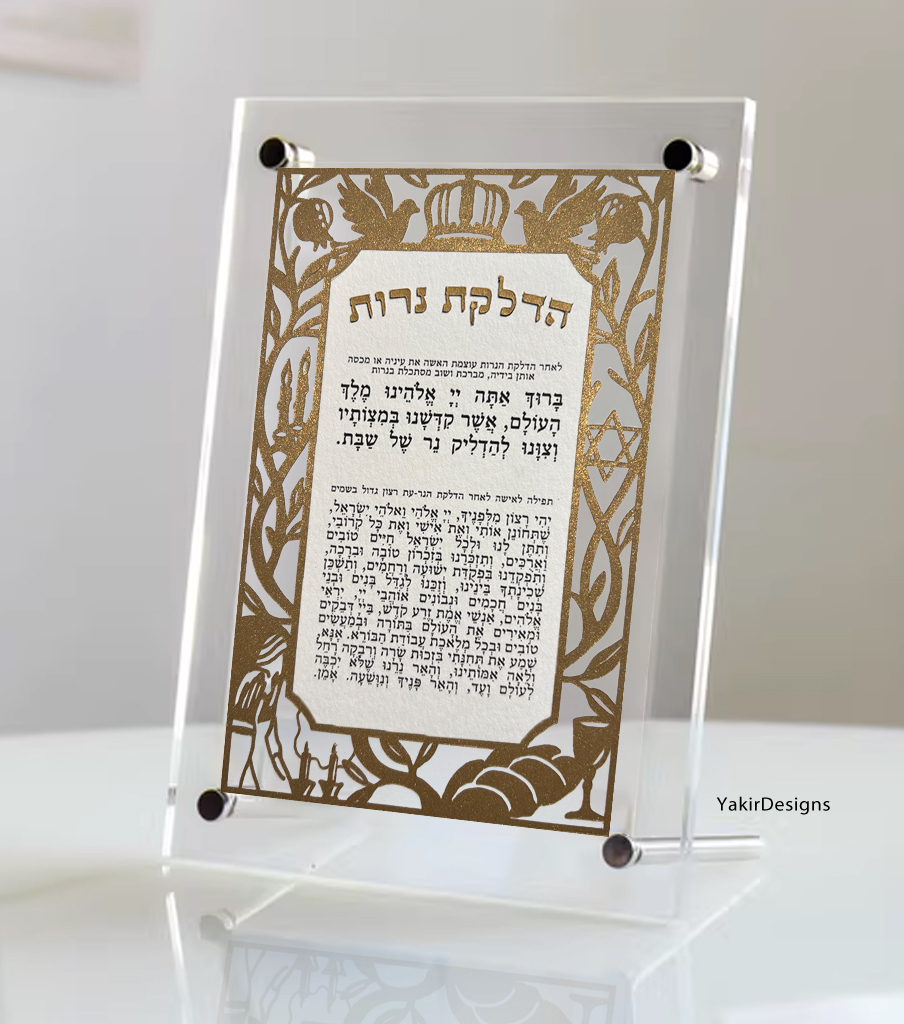 הדלקת נרות
לאחר הדלקת הנרות עוצמת האשה את עיניה או מכסה
אותן בידיה, מברכת ושוב מסתכלת בנרות
בָּרוּךְ אַתָּה יְיָ אֱלֹהֵינוּ מֶלֶךְ
הָעוֹלָם, אֲשֶׁר קִדְּשָׁנוּ בְּמִצְוֹתָיו
וְצִוָּנוּ לְהַדְלִיק נֵר שֶׁל שַׁבָּת.
תפילה לאישה לאחר הדלקת הנר-עת רצון גדול בשמים
יְהִי רָצוֹן מִלְּפָנֶיךָ, יְיָ אֱלֹהַי וֵאלֹהֵי יִשְׂרָאֵל,
שֶׁתְּחוֹנֵן אוֹתִי וְאֶת אִישִׁי וְאֶת כָּל קְרוֹבַי,
וְתִתֵּן לָנוּ וּלְכָל יִשְׂרָאֵל חַיִּים טוֹבִים
וַאֲרֻכִּים, וְתִזְכְּרֵנוּ בְּזִכְרוֹן טוֹבָה וּבְרָכָה,
וְתִפְקְדֵנוּ בִּפְקֻדַּת יְשׁוּעָה וְרַחֲמִים, וְתַשְׁכֵּן
שְׁכִינָתְךָ בֵּינֵינוּ, וְזַכֵּנוּ לְגַדֵּל בָּנִים וּבְנֵי
בָנִים חֲכָמִים וּנְבוֹנִים אוֹהֲבֵי יְיָ, יִרְאֵי
אֱלֹהִים, אַנְשֵׁי אֱמֶת זֶרַע קֹדֶשׁ, בַּיְיָ דְּבֵקִים
וּמְאִירִים אֶת הָעוֹלָם בְּתוֹרָה וּבְמַעֲשִׂים
טוֹבִים וּבְכָל מְלֶאכֶת עֲבוֹדַת הַבּוֹרֵא. אָנָּא,
שְׁמַע אֶת תְּחִנָּתִי בִּזְכוּת שָׂרָה וְרִבְקָה רָחֵל
וְלֵאָה אִמּוֹתֵינוּ, וְהָאֵר נֵרֵנוּ שֶׁלֹּא יִכְבֶּה
לְעוֹלָם וָעֶד, וְהָאֵר פָּנֶיךָ וְנִוָּשֵׁעָה. אָמֵן.
YakirDesigns